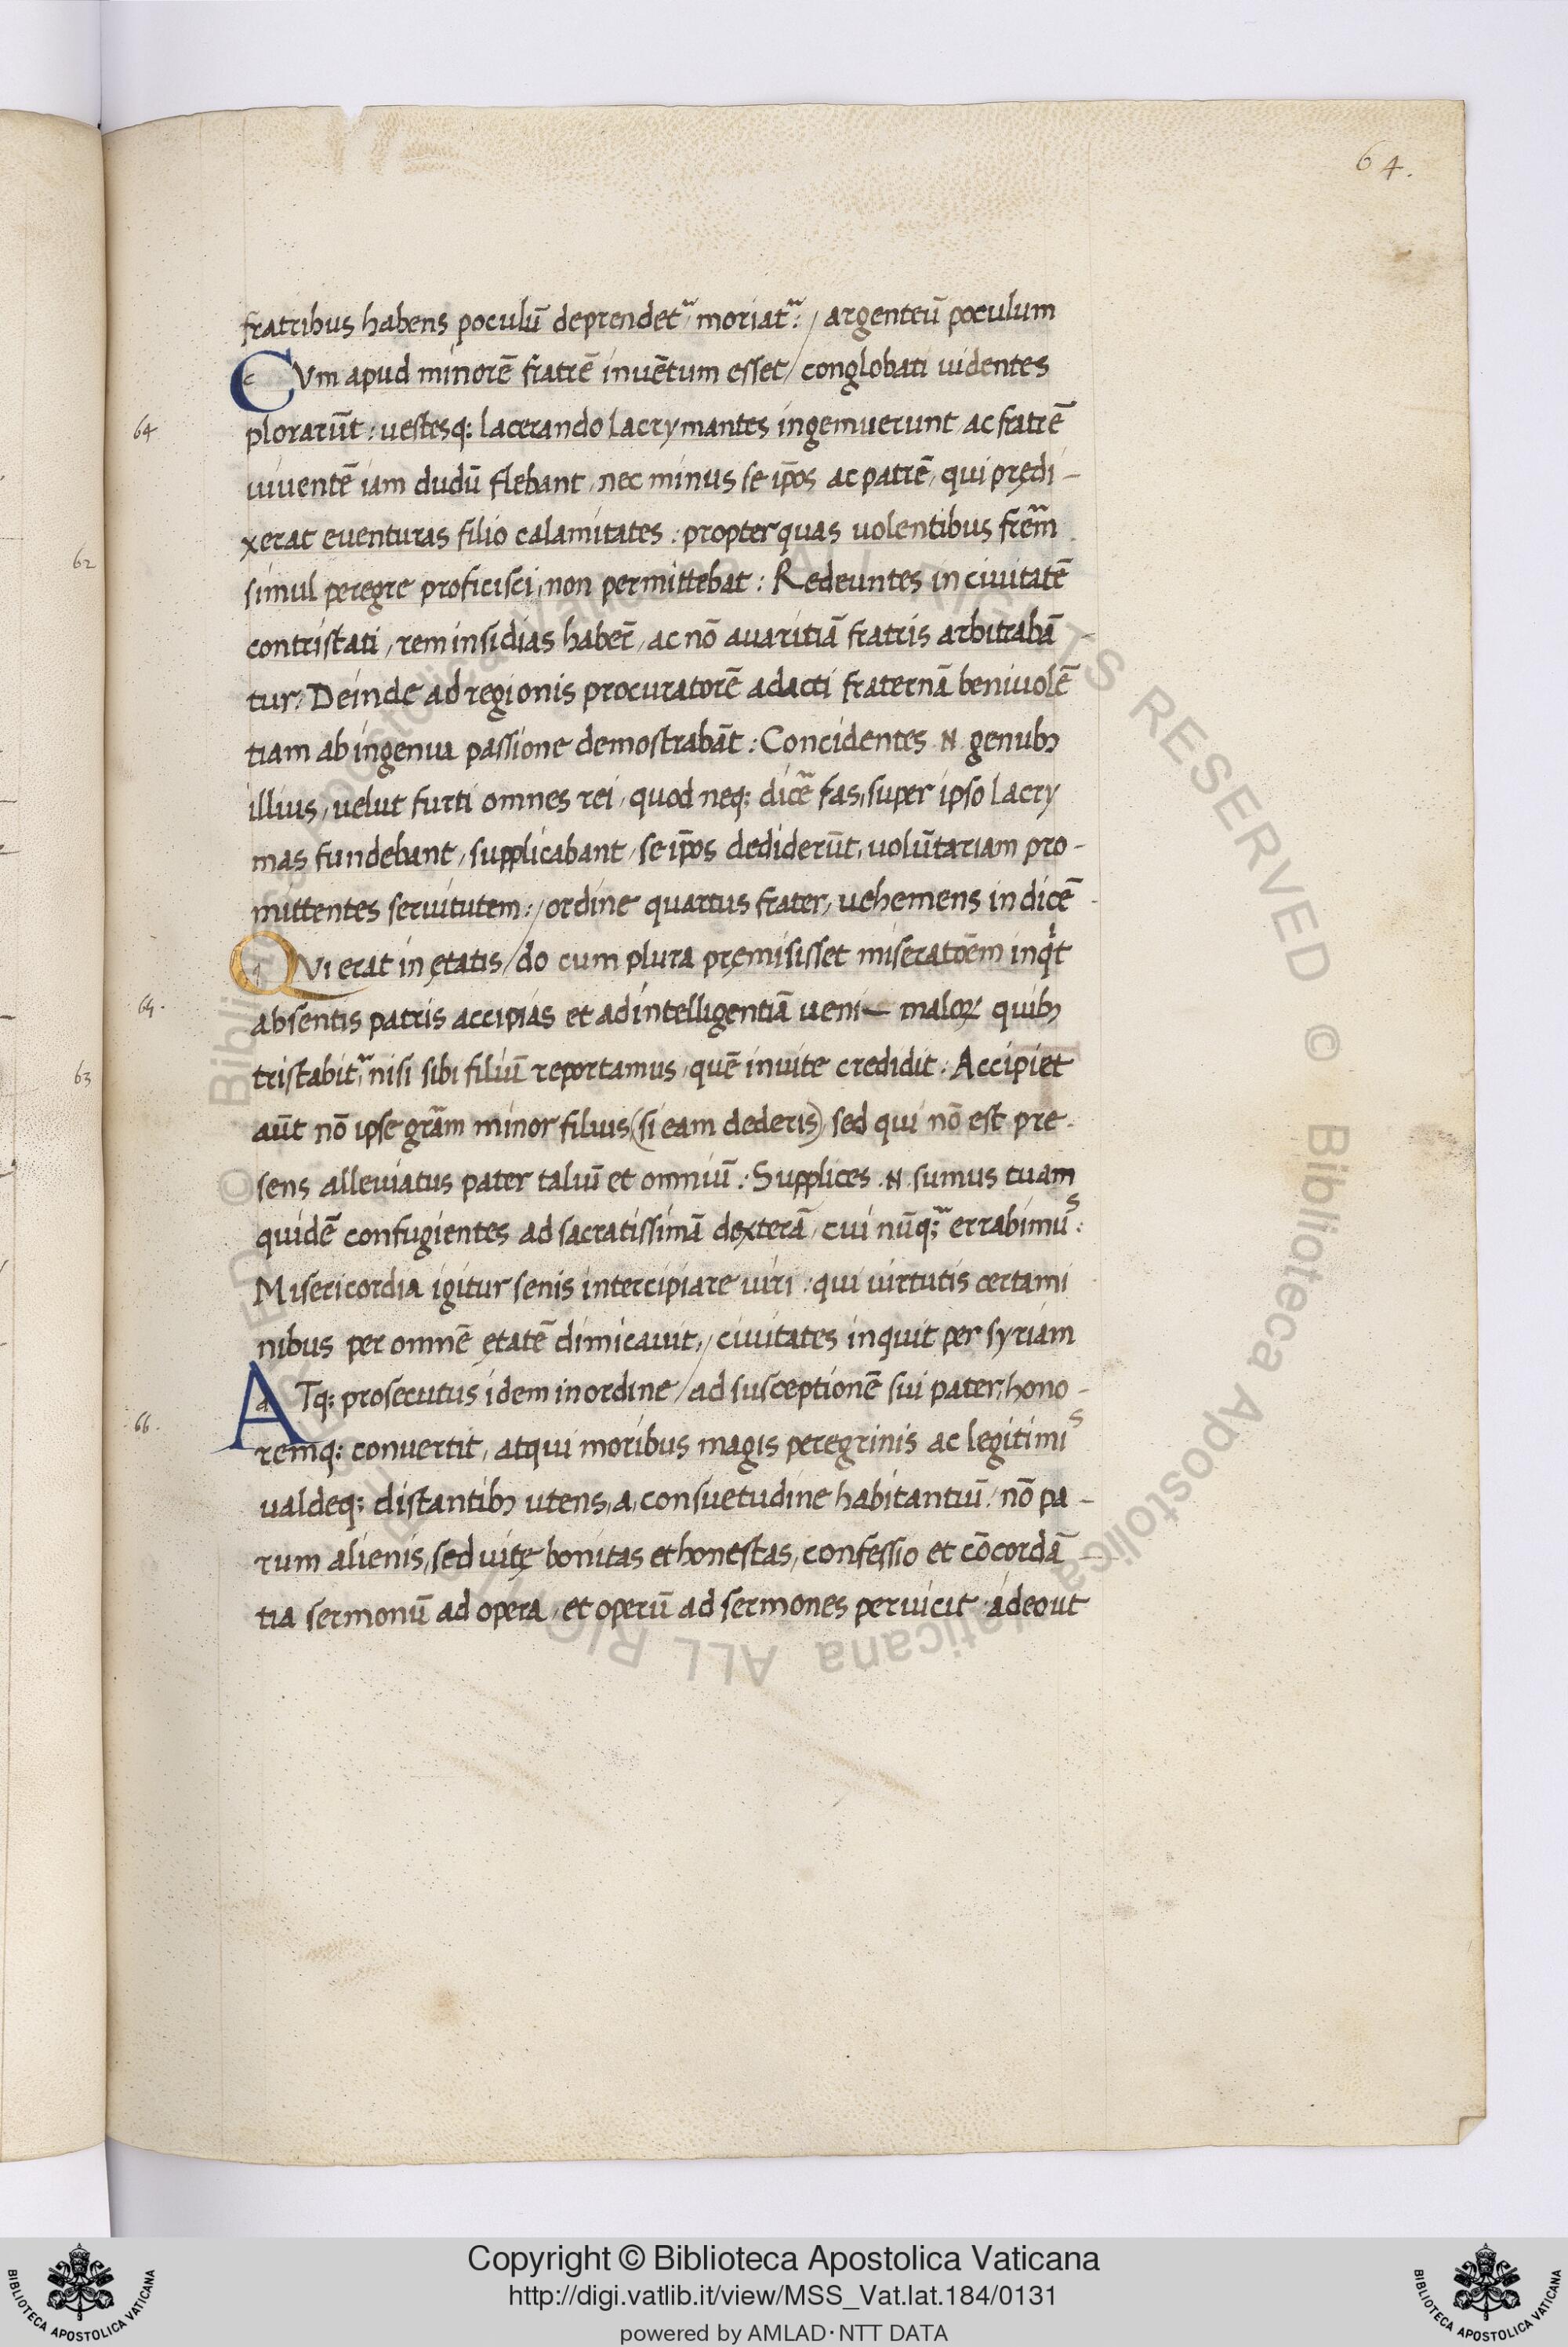 64.
fratribus habens poculū deprendet᷑, moriat᷑:/ argenteū poculum
CVm apud minorē fratrē inuētum esset/ conglobati uidentes
64
plorarūt: uestesq; lacerando lacrymantes ingemuerunt ac fratrē
uiuentē iam dudū flebant, nec minus se ip̄os ac patrē, qui prędi-
xerat euenturas filio calamitates: propter quas uolentibus frēm
62
simul peregre proficisci, non permittebat: Redeuntes in ciuitatē
contristati, rem insidias haber̄, ac nō auaritiā fratris arbitrabā-
tur, Deinde ad regionis procuratorē adacti fraternā beniuolē
tiam ab ingenua passione demostrabāt: Concidentes .N. genubꝫ
illius, uelut furti omnes rei, quod neq; dicē fas, super ipso lacry
mas fundebant, supplicabant, se ip̄os dediderūt, uolūtariam pro-
mittentes seruitutem:/ ordine quartus frater, uehemens in dicē-
QVi erat in ętatis/do cum plura pręmisisset miseratōem inq̇t
64.
absentis patris accipias et ad intelligentiā ueni- maloꝝ quibꝫ
63
tristabit᷑, nisi sibi filiū reportamus, quē inuite credidit: Accipiet
aūt nō ipse grām minor filius (si eam dederis) sed qui nō est pre-
sens alleuiatus pater taliū et omniū: Supplices .N. sumus tuam
quidē confugientes ad sacratissimā dexterā, cui nūq; errabimus:
Misericordia igitur senis intercipiare uiri: qui uirtutis certami
nibus per omnē ętatē dimicauit,/ ciuitates inquit per syriam
ATq; prosecutus idem in ordine/ ad susceptionē sui pater, hono-
66.
remq; conuertit, atqui moribus magis peregrinis ac legitimis
ualdeq; distantibꝫ utens, a, consuetudine habitantiū, nō pa-
rum alienis, sed uitę bonitas et honestas, confessio et cōcordā-
tia sermonū ad opera, et operū ad sermones peruicit, adeo ut
© Biblioteca Apostolica Vaticana ALL RIGHTS RESERVED © Biblioteca Apostolica Vaticana ALL RIGHTS RESERVED
Copyright © Biblioteca Apostolica Vaticana
http://digi.vatlib.it/view/MSS_Vat.lat.184/0131
powered by AMLAD·NTT DATA
BIBLIOTECA APOSTOLICA VATICANA
BIBLIOTECA APOSTOLICA VATICANA